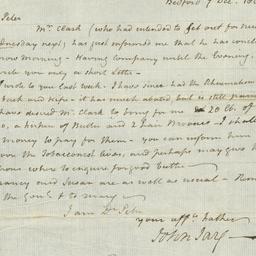 Bedford 9 Dec. 18
Peter
Mr. Clark (who had intended to set out for new
dnesday next) has just informed me that he has concl
row morning - Having company until the Evening,
write you only a short Letter -
I wrote to you last week. I have since had the Rheumatism
back and hips - it has much abated, but is still
have desired Mr. Clark to bring for me 20 lb. of
o, a firkin of Butter and 2 hair Brooms - I shall
money to pay for them - you can inform him
where the Tobacconist lives, and perhaps may give h
ions where to enquire for good butter
Nancy and Susan are as well as usual - Rem
to the Gov.r & to mary -
I am Dr. Peter
your aff.te father
John Jay -